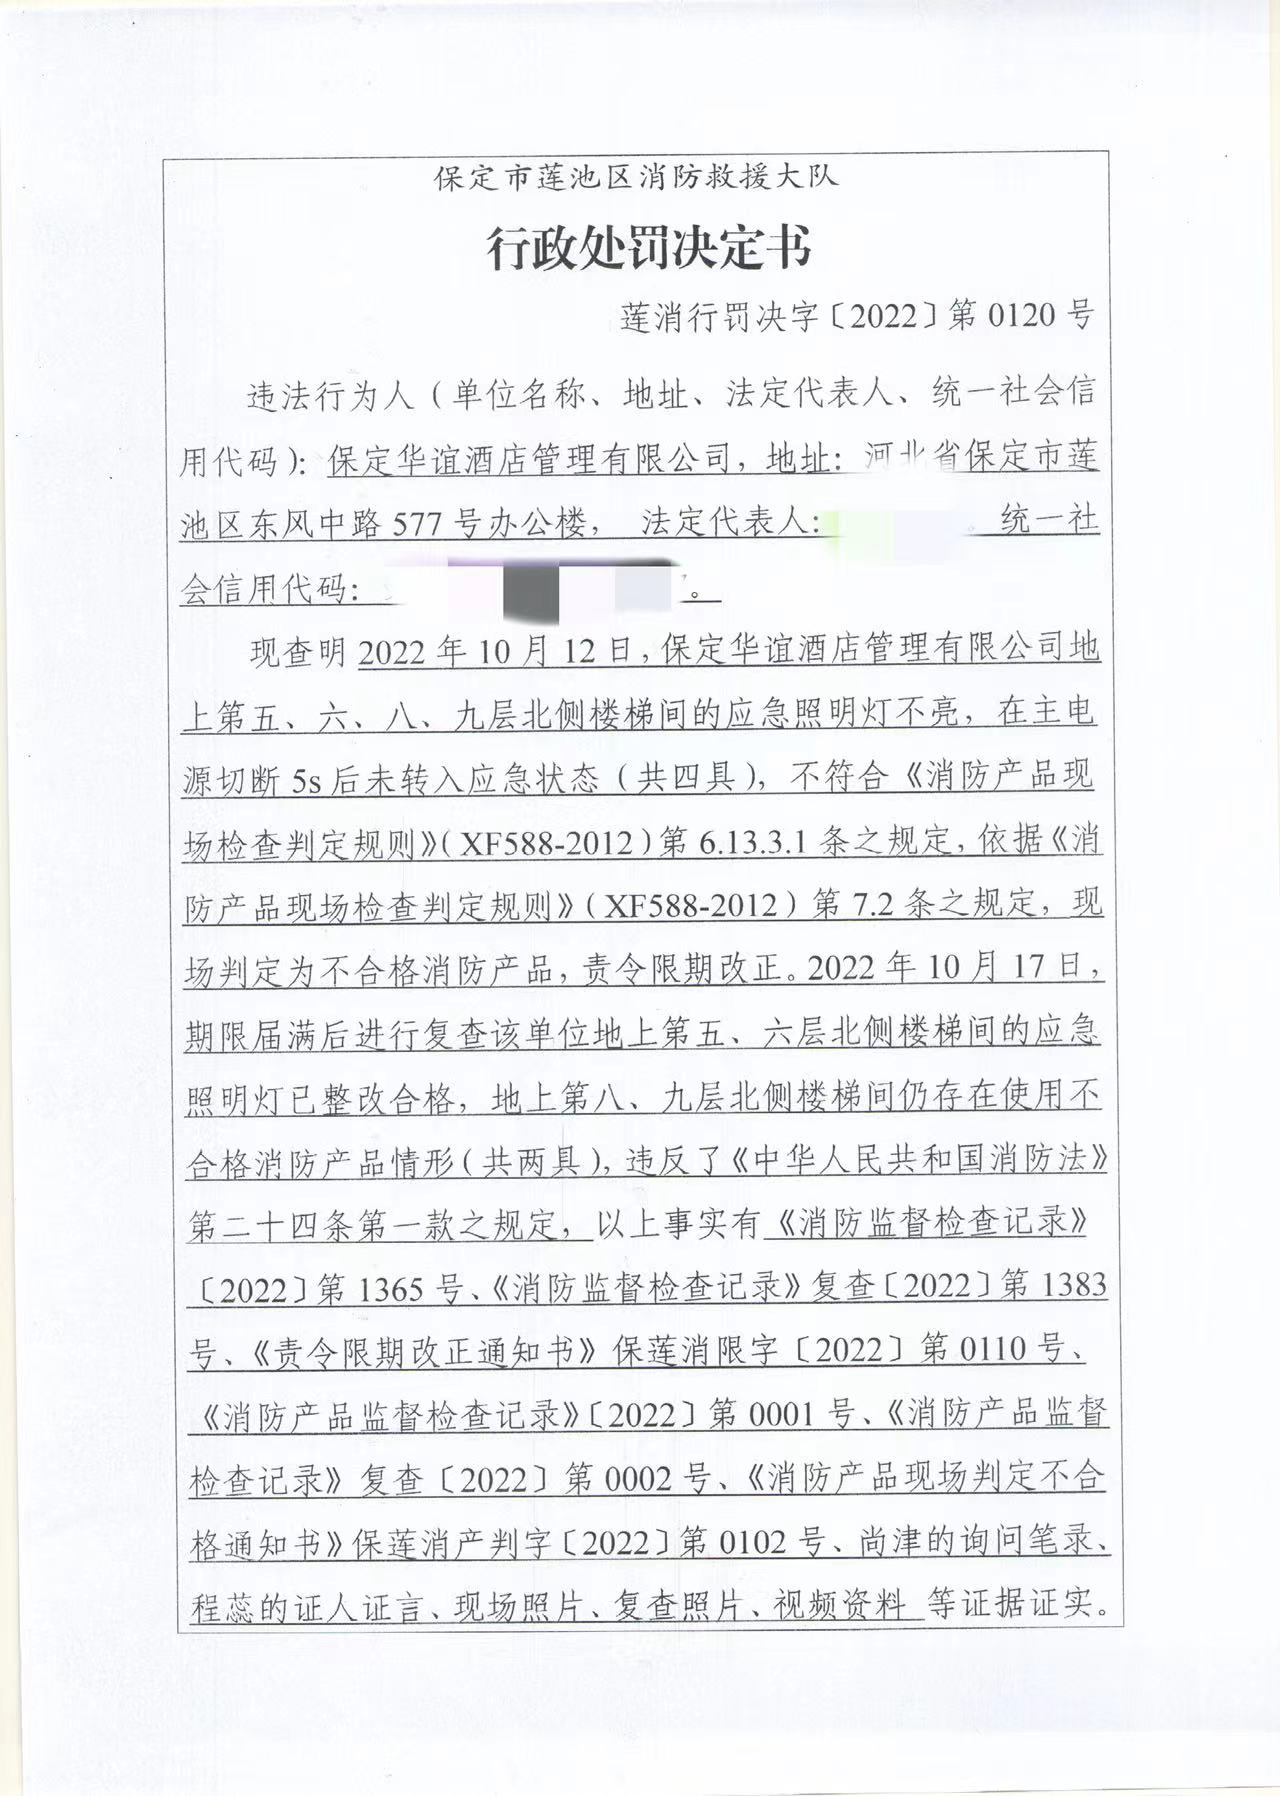 保定市莲池区消防救援大队
行政处罚决定书
莲消行罚决字〔2022〕第 0120 号
违法行为人（单位名称、地址、法定代表人、统一社会信
用代码）：保定华谊酒店管理有限公司，地址：河北省保定市莲
池区东风中路 577 号办公楼， 法定代表人： 统一社
会信用代码： 。
现查明 2022 年 10 月 12 日，保定华谊酒店管理有限公司地
上第五、六、八、九层北侧楼梯间的应急照明灯不亮，在主电
源切断 5s 后未转入应急状态（共四具），不符合《消防产品现
场检查判定规则》（XF588-2012）第 6.13.3.1 条之规定，依据《消
防产品现场检查判定规则》（XF588-2012）第 7.2 条之规定，现
场判定为不合格消防产品，责令限期改正。2022 年 10 月 17 日，
期限届满后进行复查该单位地上第五、六层北侧楼梯间的应急
照明灯已整改合格，地上第八、九层北侧楼梯间仍存在使用不
合格消防产品情形（共两具），违反了《中华人民共和国消防法》
第二十四条第一款之规定，以上事实有《消防监督检查记录》
〔2022〕第 1365 号、《消防监督检查记录》复查〔2022〕第 1383
号、《责令限期改正通知书》保莲消限字〔2022〕第 0110 号、
《消防产品监督检查记录》〔2022〕第 0001 号、《消防产品监督
检查记录》复查〔2022〕第 0002 号、《消防产品现场判定不合
格通知书》保莲消产判字〔2022〕第 0102 号、尚津的询问笔录、
程蕊的证人证言、现场照片、复查照片、视频资料 等证据证实。